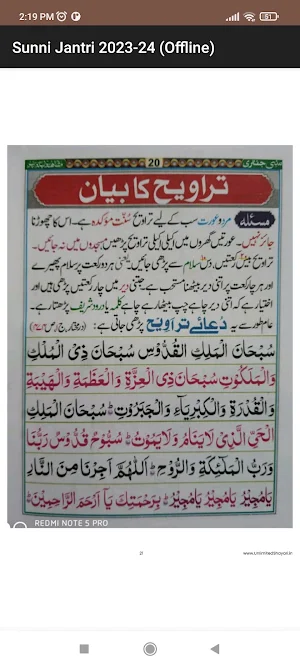 2:19 PM
51
Sunni Jantri 2023-24 (Offline)
20
سنی جنتری
تراویح کا بیان
مسئلہ مرد و عورت سب کے لیے تراویح سنّت مؤکدہ ہے۔ اس کا چھوڑنا
جائز نہیں۔ عورتیں گھروں میں اکیلی اکیلی تراویح پڑھیں مسجدوں میں نہ جائیں۔
تراویح بیس رکعتیں، دس سلام سے پڑھی جائیں۔ یعنی ہر دو رکعت پر سلام پھیرے
اور ہر چار رکعت پر اتنی دیر بیٹھنا مستحب ہے جتنی دیر میں چار رکعتیں پڑھی ہیں اور
اختیار ہے کہ اتنی دیر چاہے چپ بیٹھا رہے چاہے کلمہ یا درود شریف پڑھتا رہے۔
عام طور سے یہ دُعائے تراویح پڑھی جاتی ہے:
سُبْحَانَ الْمَلِكِ الْقُدُّوْسِ سُبْحَانَ ذِی الْمُلْكِ
وَالْمَلَكُوْتِ سُبْحَانَ ذِی الْعِزَّةِ وَالْعَظَمَةِ وَالْهَيْبَةِ
وَالْقُدْرَةِ وَالْكِبْرِيَآءِ وَالْجَبَرُوْتِ سُبْحَانَ الْمَلِكِ
الْحَیِّ الَّذِیْ لَا يَنَامُ وَلَا يَمُوْتُ سُبُّوْحٌ قُدُّوْسٌ رَبُّنَا
وَرَبُّ الْمَلٰٓئِكَةِ وَالرُّوْحِ اَللّٰهُمَّ اَجِرْنَا مِنَ النَّارِ
يَا مُجِيْرُ يَا مُجِيْرُ يَا مُجِيْرُ بِرَحْمَتِكَ يَآ اَرْحَمَ الرَّاحِمِيْنَ
REDMI NOTE 5 PRO
21